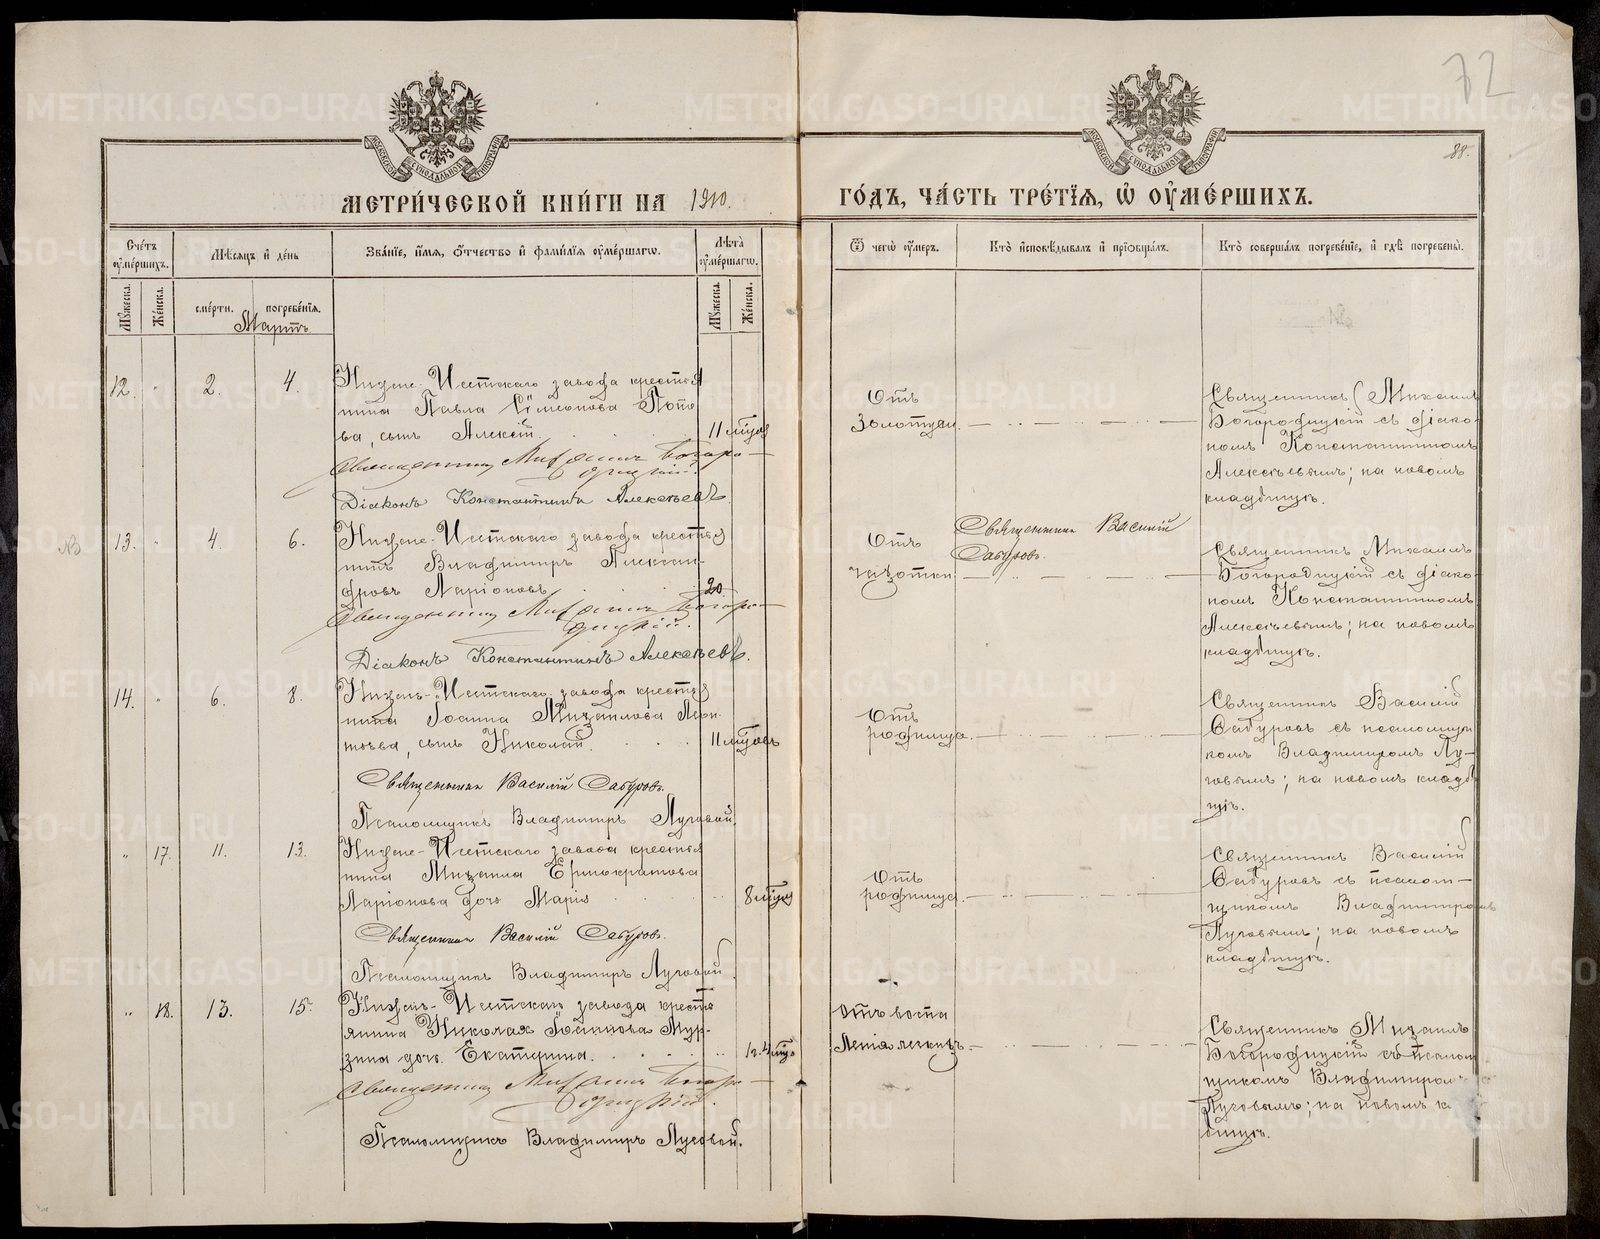 72
88.
МОСКОВСКОЙ СѴНОДАЛЬНОЙ ТИПОГРАФІИ
МОСКОВСКОЙ СѴНОДАЛЬНОЙ ТИПОГРАФІИ
МЕТРИ́ЧЕСКОЙ КНИ́ГИ НА 1910. ГО́ДЪ, ЧА́СТЬ ТРЕ́ТІЯ, Ѡ ОУМЕ́РШИХЪ.
Сче́тъ оуме́ршихъ.
Мѣ́сяцъ и де́нь
Зва́ніе, и́мя, о́тчество и фами́лія оуме́ршагѡ.
Лѣ́та оуме́ршагѡ.
Ѿ чегѡ̀ оу́меръ.
Кто̀ исповѣ́дывалъ и пріѡбща́лъ.
Кто̀ соверша́лъ погребе́ніе, и гдѣ̀ погребены̀.
Мꙋ́жеска. Же́нска. сме́рти. погребе́нія. Мꙋ́жеска. Же́нска.
Мартъ
12. " 2. 4. Нижне-Исетскаго завода крестья
нина Павла Сѵмеонова Попо
ва, сынъ Алексій. 11 мѣсяц
Священникъ Михаилъ Богоро-
дицкій.
Діаконъ Константинъ Алексѣевъ.
Отъ
золотухи.
Священникъ Михаилъ
Богородицкій съ діако-
номъ Константиномъ
Алексѣевымъ; на новомъ
кладбищѣ.
№ 13. " 4. 6. Нижне-Исетскаго завода крестья
нинъ Владиміръ Алексан-
дровъ Ларіоновъ. 20
Священникъ Михаилъ Богоро-
дицкій.
Діаконъ Константинъ Алексѣевъ.
Отъ
чахотки.
Священникъ Василій
Сабуровъ.
Священникъ Михаилъ
Богородицкій съ діако-
номъ Константиномъ
Алексѣевымъ; на новомъ
кладбищѣ.
14. " 6. 8. Нижне-Исетскаго завода крестья
нина Іоанна Михаилова Леон
тьева, сынъ Николай. 11 мѣсяцевъ
Священникъ Василій Сабуровъ.
Псаломщикъ Владиміръ Луговой.
Отъ
родимца.
Священникъ Василій
Сабуровъ съ псаломщи
комъ Владиміромъ Лу-
говымъ; на новомъ кладб
щѣ.
" 17. 11. 13. Нижне-Исетскаго завода крестья
нина Михаила
Ларіонова дочь Марія 8 мѣсяц
Священникъ Василій Сабуровъ.
Псаломщикъ Владиміръ Луговой.
Отъ
родимца.
Священникъ Василій
Сабуровъ съ псалом-
щикомъ Владиміромъ
Луговымъ; на новомъ
кладбищѣ.
" 18. 13. 15. Нижне-Исетскаго завода кресть
янина Николая Іоаннова Мур-
зина дочь Екатерина.
Священникъ Михаилъ Богоро-
дицкій.
Псаломщикъ Владиміръ Луговой.
Отъ воспа
ленія легкихъ.
Священникъ Михаилъ
Богородицкій съ псалом
щикомъ Владиміромъ
Луговымъ; на новомъ к
бищѣ.
METRIKI.GASO-URAL.RU